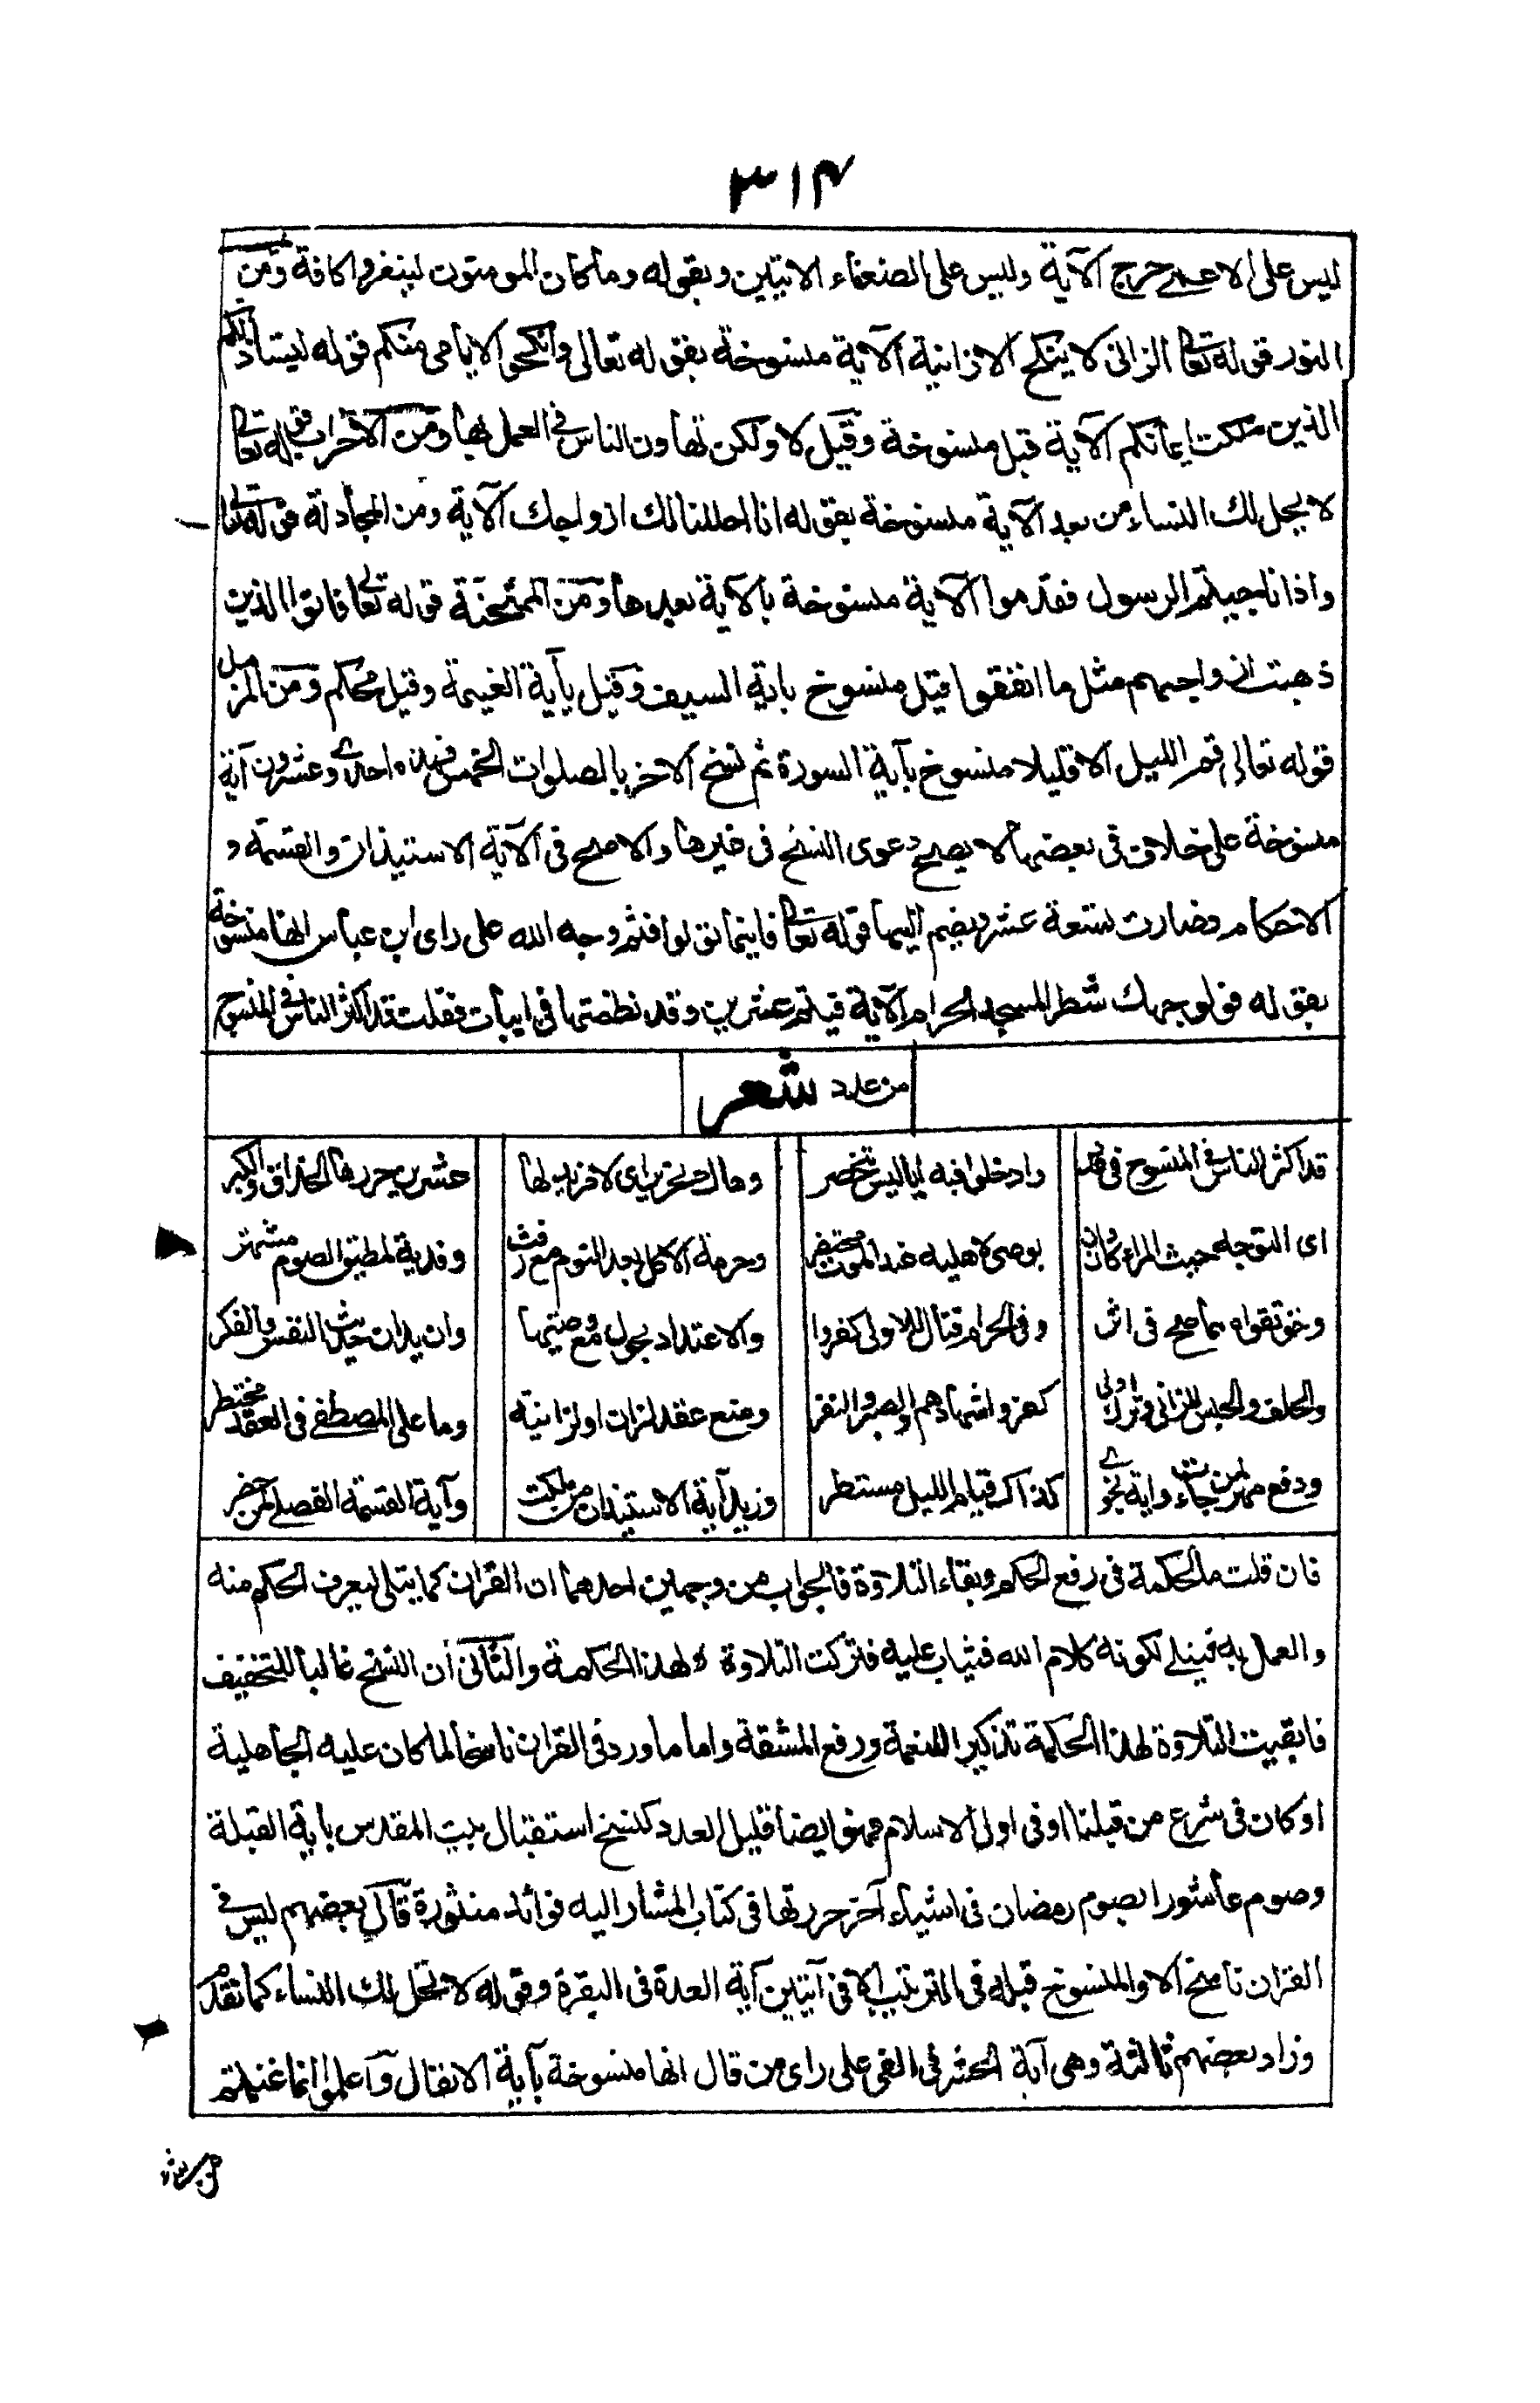 ٣١٤
ليس على الاعمى حرج الآية وليس على الضعفاء الايتين وبقوله وما كان المومنون لينفروا كافة ومن
النور قوله تعالى الزانى لا ينكح الا زانية الآية منسوخة بقوله تعالى وانكحوا الايامى منكم قوله ليستأذنكم
الذين ملكت ايمانكم الآية قيل منسوخة وقيل لا ولكن تهاون الناس فى العمل بها ومن الاحزاب قوله تعالى
لا يحل لك النساء من بعد الآية منسوخة بقوله انا احللنا لك ازواجك الآية ومن المجادلة قوله تعالى
واذا ناجيتم الرسول فقدموا الآية منسوخة بالآية بعدها ومن الممتحنة قوله تعالى فاتوا الذين
ذهبت ازواجهم مثل ما انفقوا قيل منسوخ باية السيف وقيل بآية الغنيمة وقيل محكم ومن المزمل
قوله تعالى قم الليل الا قليلا منسوخ بآية السورة ثم نسخ الاخر بالصلوات الخمس فهذه احدى وعشرون آية
منسوخة على خلاف فى بعضها لا يصح دعوى النسخ فى غيرها والاصح فى الآية الاستيذان والقسمة و
الاحكام فصارت تسعة عشر ويضم اليها قوله تعالى فاينما تولوا فثم وجه الله على راى ابن عباس انها منسوخة
بقوله فول وجهك شطر المسجد الحرام الآية فيتم عشرين وقد نظمتها فى ابيات فقلت قد اكثر الناس فى المنسوخ
من عدد شعر
قد اكثر الناس فى المنسوخ من عدد وادخلوا فيه ايا ليس تنحصر وهاك تحرير اى لا مزيد لها عشرين حررها الحذاق والكبر
اى التوجه حيث المرء كان وان يوصى لاهليه عند الموت محتضر وحرمة الاكل بعد النوم مع رفث وفدية لمطيق الصوم مشتهر
وحق تقواه بما صح فى اثر وفى الحرام قتال للاولى كفروا والاعتداد بحول مع وصيتها وان يدان حديث النفس والفكر
والحلف والحبس للزانى وترك اولى كفروا اشهادهم والصبر والنفر ومنع عقد لزان او لزانية وما على المصطفى فى العقد محتظر
ودفع مهر لمن جاءت واية نجوى كذاك قيام الليل مستطر وزيد آية الاستيذان من ملكت وآية القسمة الفصلى لمن حضر
فان قلت ما الحكمة فى رفع الحكم وبقاء التلاوة فالجواب من وجهين احدهما ان القران كما يتلى ليعرف الحكم منه
والعمل به فيتلى لكونه كلام الله فيثاب عليه فتركت التلاوة لهذا الحكمة والثانى ان النسخ غالبا للتخفيف
فابقيت التلاوة لهذا الحكمة تذكير النعمة ورفع المشقة واما ما ورد فى القران ناسخا لما كان عليه الجاهلية
او كان فى شرع من قبلنا او فى اول الاسلام فهو ايضا قليل العدد كنسخ استقبال بيت المقدس باية القبلة
وصوم عاشورا بصوم رمضان فى اشياء آخر حررتها فى كتاب المشار اليه فوائد منثورة قال بعضهم ليس فى
القران ناسخ الا والمنسوخ قبله فى الترتيب الا فى آيتين آية العدة فى البقرة وقوله لا تحل لك النساء كما تقدم
وزاد بعضهم ثالثة وهى آية الحشر فى الفى على راى من قال انها منسوخة بآية الانفال واعلموا انما غنمتم